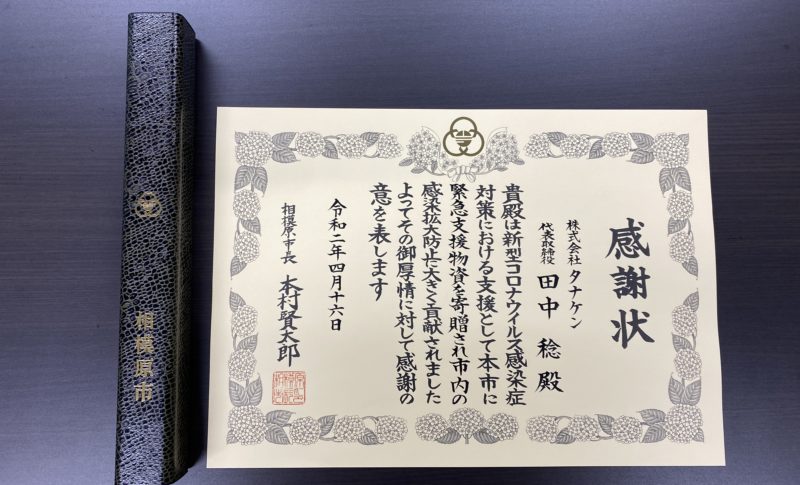 感謝状
株式会社 タナケン
代表取締役 田中 稔 殿
貴殿は新型コロナウイルス感染症
対策における支援として本市に
緊急支援物資を寄贈され市内の
感染拡大防止に大きく貢献されました
よってその御厚情に対して感謝の
意を表します
令和二年四月十六日
相模原市長 本村賢太郎
相模原市